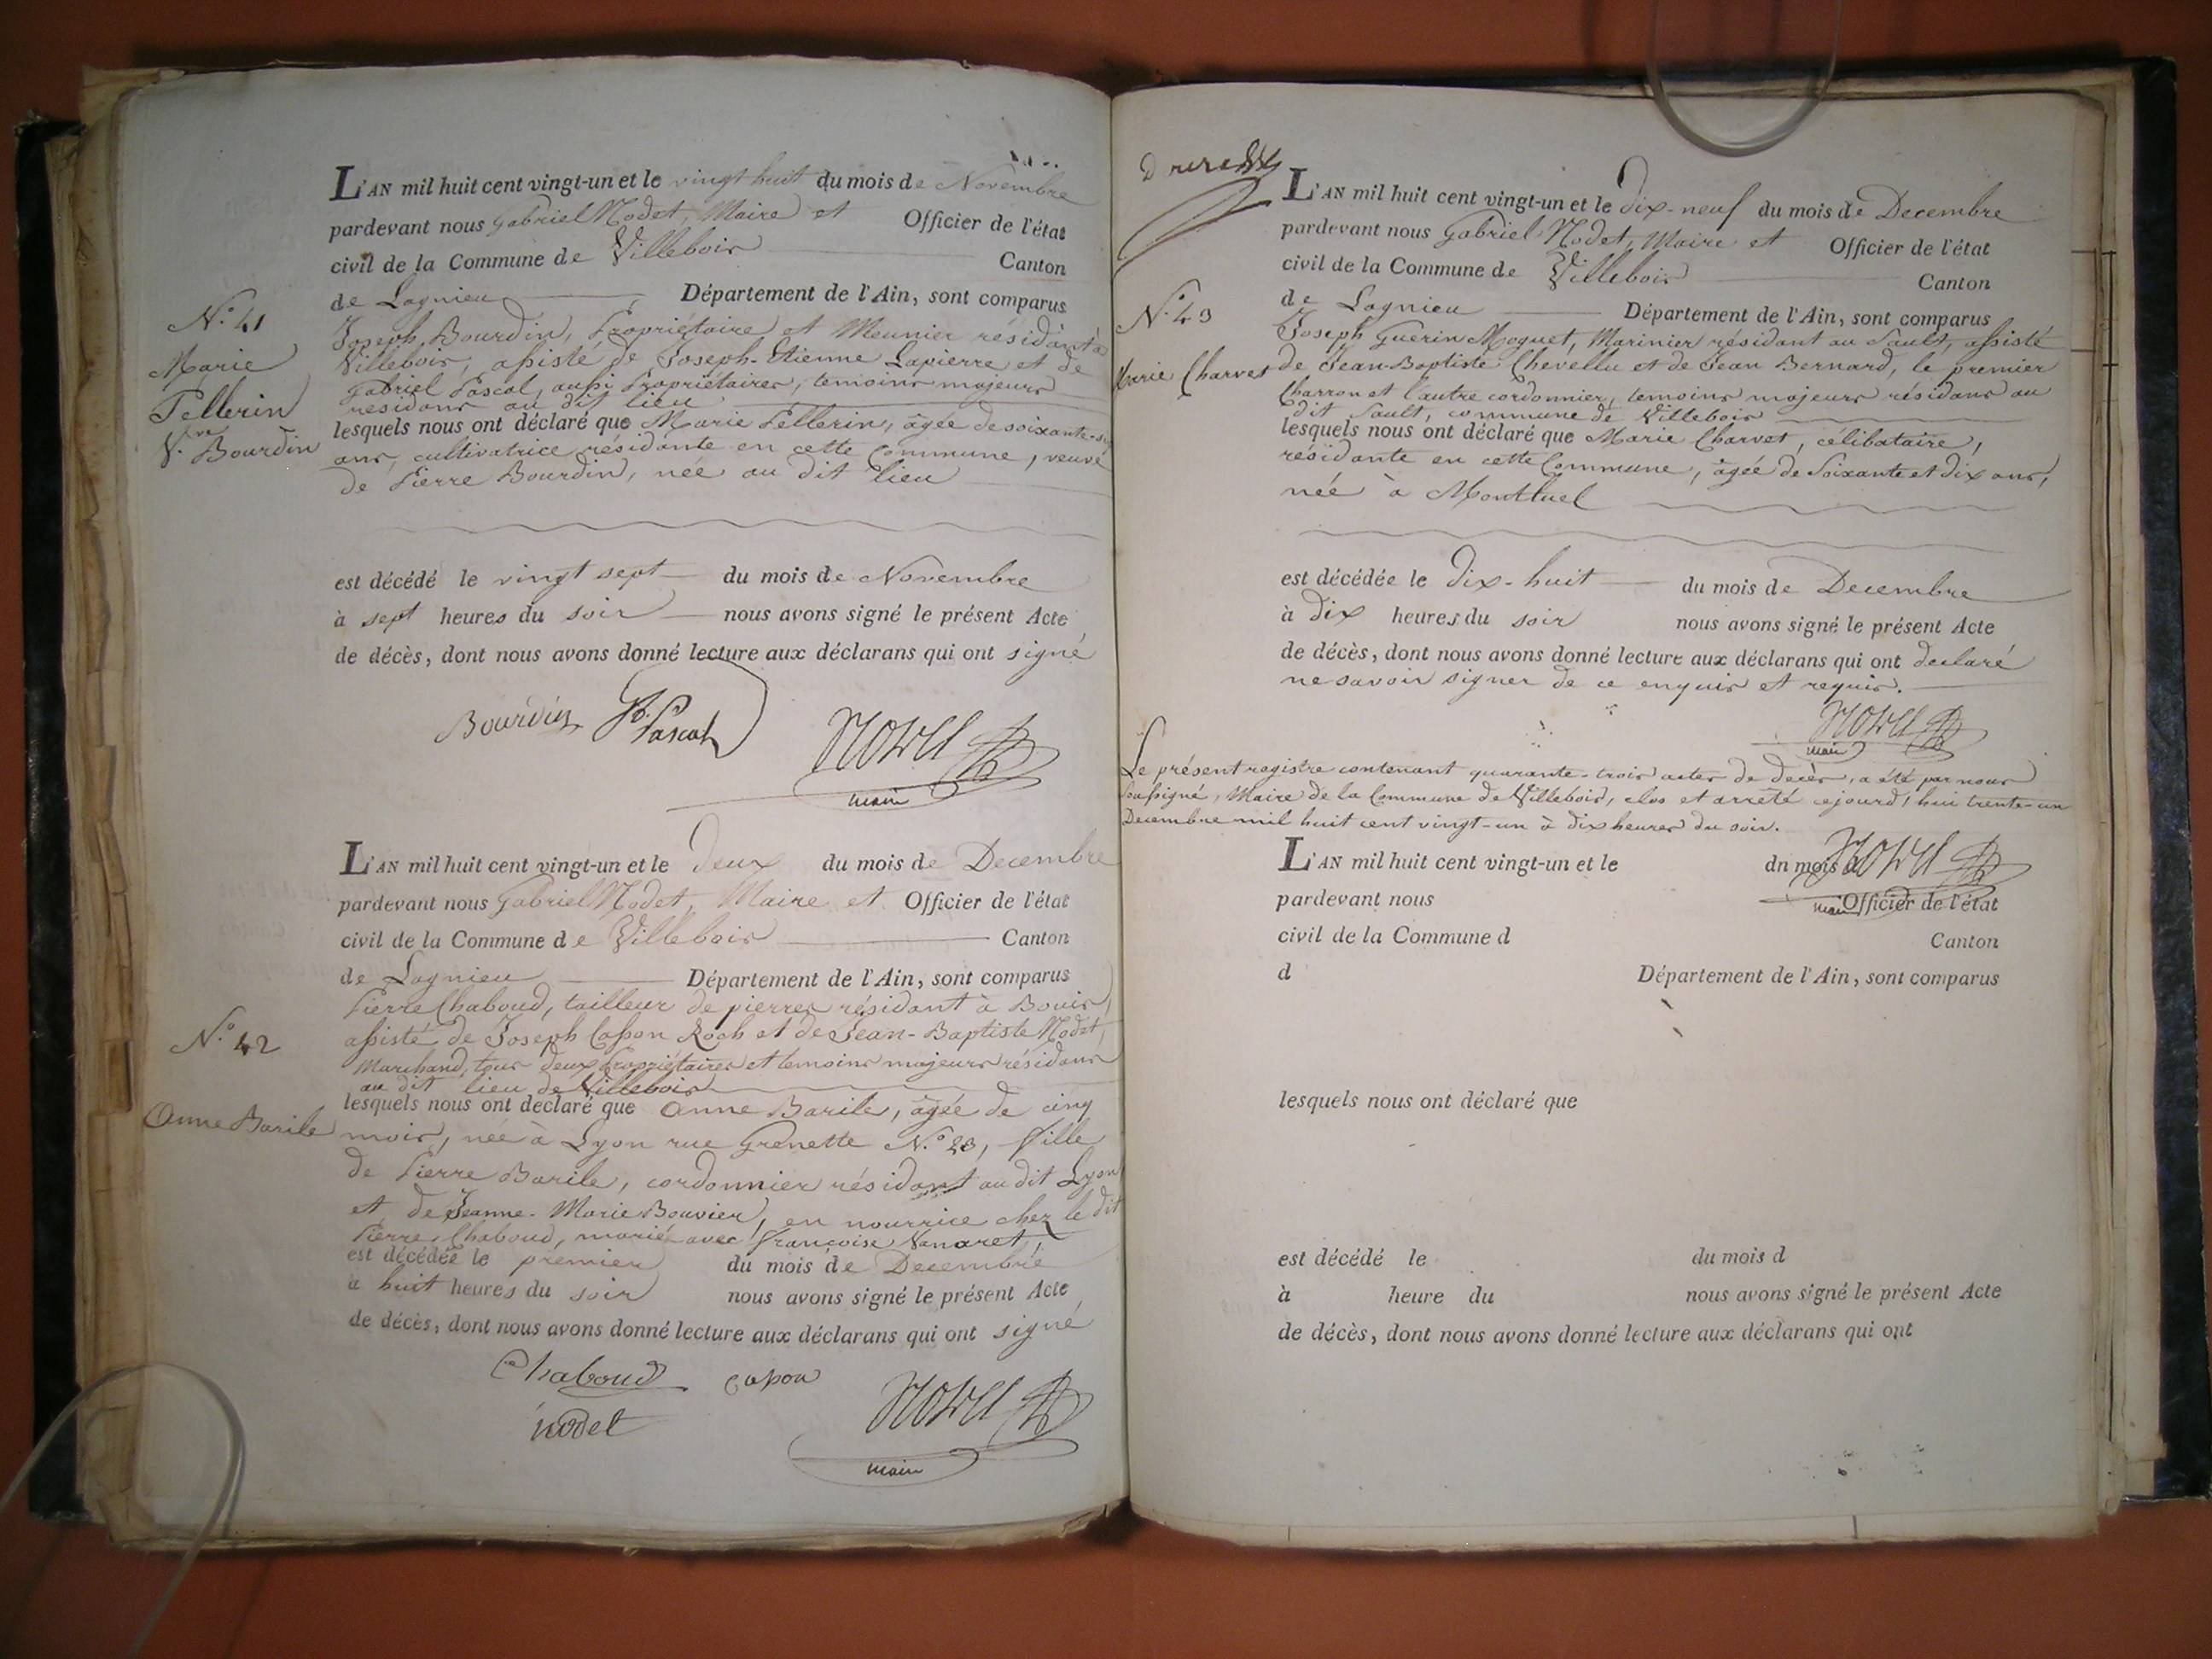 L'AN mil huit cent vingt-un et le vingt huit du mois de Novembre
pardevant nous Gabriel Nodet, Maire et Officier de l'état
civil de la Commune de Villebois Canton
de Lagnieu Département de l'Ain, sont comparus
N.o 41
Marie
Pellerin
V.ve Bourdin
Joseph Bourdin, Propriétaire et Meunier résidant à
Villebois, assisté de Joseph-Etienne Lapierre et de
Gabriel Pascal, aussi Propriétaires, temoins majeurs
residans au dit lieu
lesquels nous ont déclaré que Marie Pellerin, âgée de soixante-six
ans, cultivatrice résidante en cette Commune, veuve
de Pierre Bourdin, née au dit lieu
est décédé le vingt sept du mois de Novembre
à sept heures du soir nous avons signé le présent Acte
de décès, dont nous avons donné lecture aux déclarans qui ont signé
Bourdin Pascal Nodet
maire
L'AN mil huit cent vingt-un et le deux du mois de Decembre
pardevant nous Gabriel Nodet, Maire et Officier de l'état
civil de la Commune de Villebois Canton
de Lagnieu Département de l'Ain, sont comparus
N.o 42
Anne Barile
Pierre Chaboud, tailleur de pierres résidant à Bouis,
assisté de Joseph Casson Roch et de Jean-Baptiste Nodet,
Marchand, tous deux Propriétaires et temoins majeurs résidans
au dit lieu de Villebois
lesquels nous ont declaré que Anne Barile, âgée de cinq
mois, née à Lyon rue Grenette N.o 23, fille
de Pierre Barile, cordonnier résidant au dit Lyon
et de Jeanne-Marie Bouvier, en nourrice chez le dit
Pierre Chaboud, marié avec Françoise Nanaret,
est décédée le premier du mois de Decembre
à huit heures du soir nous avons signé le présent Acte
de décès, dont nous avons donné lecture aux déclarans qui ont signé
Chaboud Casson Nodet
nodet
maire
L'AN mil huit cent vingt-un et le dix-neuf du mois de Decembre
pardevant nous Gabriel Nodet, Maire et Officier de l'état
civil de la Commune de Villebois Canton
de Lagnieu Département de l'Ain, sont comparus
N.o 43
Marie Charvet
Joseph Guerin Moquet, Marinier résidant au Sault, assisté
de Jean-Baptiste Chevellu et de Jean Bernard, le premier
Charron et l'autre cordonnier, temoins majeurs résidans au
dit Sault, commune de Villebois
lesquels nous ont déclaré que Marie Charvet, célibataire,
résidante en cette Commune, âgée de Soixante et dix ans,
née à Montluel
est décédée le dix-huit du mois de Decembre
à dix heures du soir nous avons signé le présent Acte
de décès, dont nous avons donné lecture aux déclarans qui ont declaré
ne savoir signer de ce enquis et requis.
Nodet
maire
Le présent registre contenant quarante-trois actes de decès, a été par nous
soussigné, Maire de la Commune de Villebois, clos et arrêté cejourd'hui trente-un
Decembre mil huit cent vingt-un à dix heures du soir.
Nodet
maire
L'AN mil huit cent vingt-un et le dn mois d
pardevant nous Officier de l'état
civil de la Commune d Canton
d Département de l'Ain, sont comparus
lesquels nous ont déclaré que
est décédé le du mois d
à heure du nous avons signé le présent Acte
de décès, dont nous avons donné lecture aux déclarans qui ont